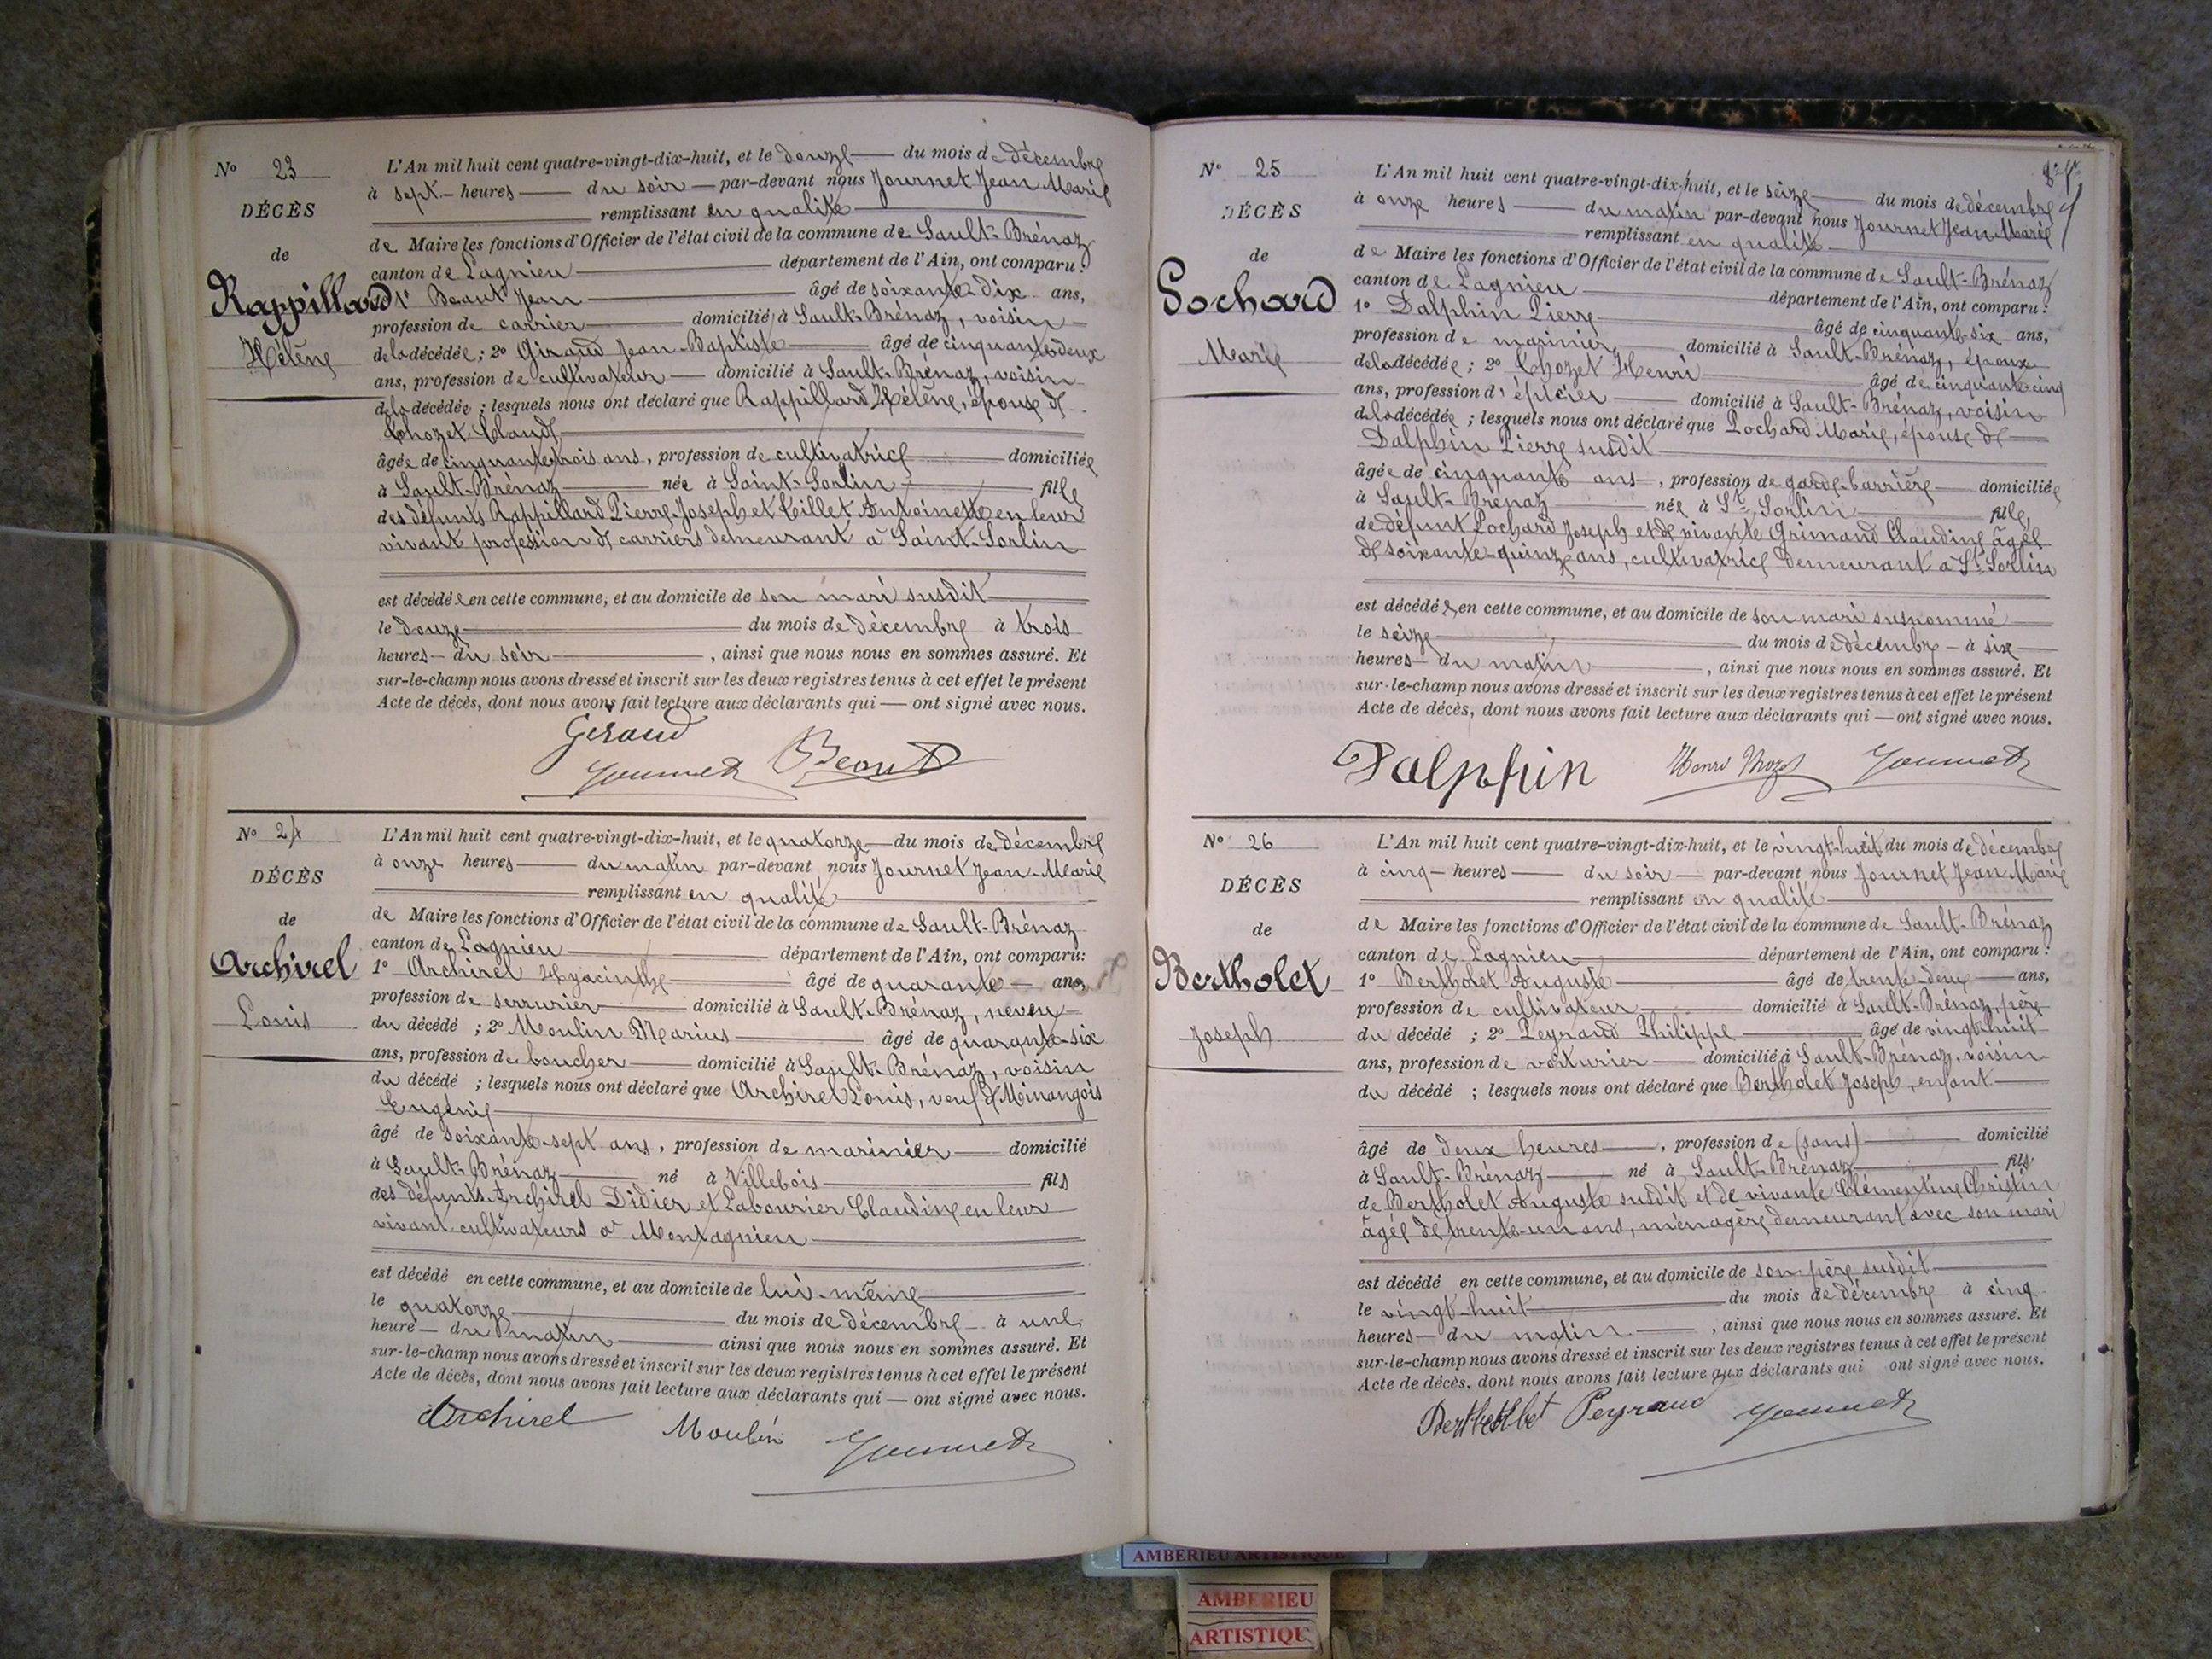 N° 23
DÉCÈS
de
Rappillard
Hélène
L'An mil huit cent quatre-vingt-dix-huit, et le douze du mois de décembre
à sept heures du soir par-devant nous Journet Jean Marie
remplissant en qualité
de Maire les fonctions d'Officier de l'état civil de la commune de Sault-Brénaz
canton de Lagnieu département de l'Ain, ont comparu:
1° Beaut Jean âgé de soixante-dix ans,
profession de carrier domicilié à Sault-Brénaz, voisin
de la décédée; 2° Giraud Jean-Baptiste âgé de cinquante-deux
ans, profession de cultivateur domicilié à Sault-Brénaz, voisin
de la décédée; lesquels nous ont déclaré que Rappillard Hélène, épouse de
Chozet Claude
âgée de cinquante-trois ans, profession de cultivatrice domiciliée
à Sault-Brénaz née à Saint-Sorlin fille
des défunts Rappillard Pierre-Joseph et Tillet Antoinette en leur
vivant profession de carriers demeurant à Saint-Sorlin
est décédée en cette commune, et au domicile de son mari susdit
le douze du mois de décembre à trois
heures du soir, ainsi que nous nous en sommes assuré. Et
sur-le-champ nous avons dressé et inscrit sur les deux registres tenus à cet effet le présent
Acte de décès, dont nous avons fait lecture aux déclarants qui — ont signé avec nous.
Giraud
Journet Beaut
N° 24
DÉCÈS
de
Archirel
Louis
L'An mil huit cent quatre-vingt-dix-huit, et le quatorze du mois de décembre
à onze heures du matin par-devant nous Journet Jean-Marie
remplissant en qualité
de Maire les fonctions d'Officier de l'état civil de la commune de Sault-Brénaz
canton de Lagnieu département de l'Ain, ont comparu:
1° Archirel Hyacinthe âgé de quarante ans,
profession de serrurier domicilié à Sault-Brénaz, neveu
du décédé; 2° Moulin Marius âgé de quarante-six
ans, profession de boucher domicilié à Sault-Brénaz, voisin
du décédé; lesquels nous ont déclaré que Archirel Louis, veuf de Minangois
Eugénie
âgé de soixante-sept ans, profession de marinier domicilié
à Sault-Brénaz né à Villebois fils
des défunts Archirel Didier et Labourier Claudine en leur
vivant cultivateurs à Montagnieu
est décédé en cette commune, et au domicile de lui-même
le quatorze du mois de décembre à une
heure du matin ainsi que nous nous en sommes assuré. Et
sur-le-champ nous avons dressé et inscrit sur les deux registres tenus à cet effet le présent
Acte de décès, dont nous avons fait lecture aux déclarants qui — ont signé avec nous.
Archirel Moulin Journet
N° 25
DÉCÈS
de
Pochard
Marie
L'An mil huit cent quatre-vingt-dix-huit, et le seize du mois de décembre
à onze heures du matin par-devant nous Journet Jean Marie
remplissant en qualité
de Maire les fonctions d'Officier de l'état civil de la commune de Sault-Brénaz
canton de Lagnieu département de l'Ain, ont comparu:
1° Dalphin Pierre âgé de cinquante-six ans,
profession de marinier domicilié à Sault-Brénaz, époux
de la décédée; 2° Chozet Henri âgé de cinquante-cinq
ans, profession d'épicier domicilié à Sault-Brénaz, voisin
de la décédée; lesquels nous ont déclaré que Pochard Marie, épouse de
Dalphin Pierre susdit
âgée de cinquante ans, profession de garde-barrière domiciliée
à Sault-Brénaz née à St Sorlin fille
de défunt Pochard Joseph et de vivante Grimand Claudine âgée
de soixante-quinze ans, cultivatrice demeurant à St Sorlin
est décédée en cette commune, et au domicile de son mari susnommé
le seize du mois de décembre à six
heures du matin, ainsi que nous nous en sommes assuré. Et
sur-le-champ nous avons dressé et inscrit sur les deux registres tenus à cet effet le présent
Acte de décès, dont nous avons fait lecture aux déclarants qui — ont signé avec nous.
Dalphin Henri Chozet Journet
N° 26
DÉCÈS
de
Bertholet
Joseph
L'An mil huit cent quatre-vingt-dix-huit, et le vingt-huit du mois de décembre
à cinq heures du soir par-devant nous Journet Jean Marie
remplissant en qualité
de Maire les fonctions d'Officier de l'état civil de la commune de Sault-Brénaz
canton de Lagnieu département de l'Ain, ont comparu:
1° Bertholet Auguste âgé de trente-deux ans,
profession de cultivateur domicilié à Sault-Brénaz, père
du décédé; 2° Peyraud Philippe âgé de vingt-huit
ans, profession de voiturier domicilié à Sault-Brénaz, voisin
du décédé; lesquels nous ont déclaré que Bertholet Joseph, enfant
âgé de deux heures, profession de (sans) domicilié
à Sault-Brénaz né à Sault-Brénaz fils
de Bertholet Auguste susdit et de vivante Clémentine Christin
âgée de trente-un ans, ménagère demeurant avec son mari
est décédé en cette commune, et au domicile de son père susdit
le vingt-huit du mois de décembre à cinq
heures du matin, ainsi que nous nous en sommes assuré. Et
sur-le-champ nous avons dressé et inscrit sur les deux registres tenus à cet effet le présent
Acte de décès, dont nous avons fait lecture aux déclarants qui ont signé avec nous.
Bertholet Peyraud Journet
AMBERIEU ARTISTIQUE
AMBERIEU
ARTISTIQU